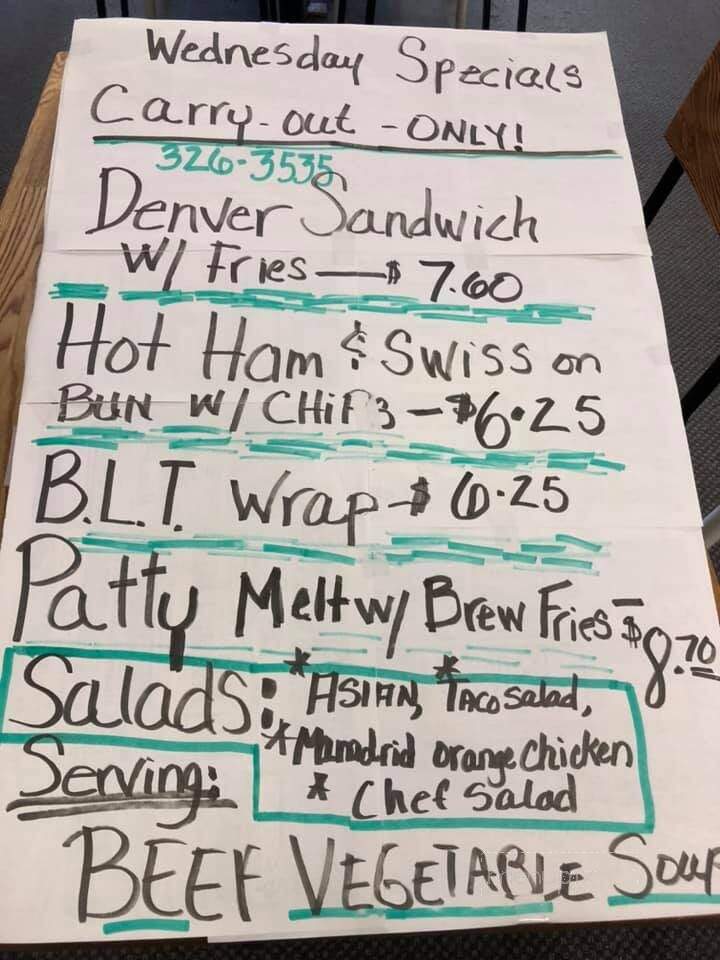 Wednesday Specials
Carry-out - ONLY!
326-3535
Denver Sandwich
W/ Fries — $ 7.60
Hot Ham & Swiss on
BUN W/ CHIPS - $6.25
B.L.T. Wrap - $ 6.25
Patty Melt w/ Brew Fries - $8.70
Salads: * ASIAN, * TACO Salad,
* Manadrid orange chicken
* Chef Salad
Serving:
BEEF VEGETABLE Soup